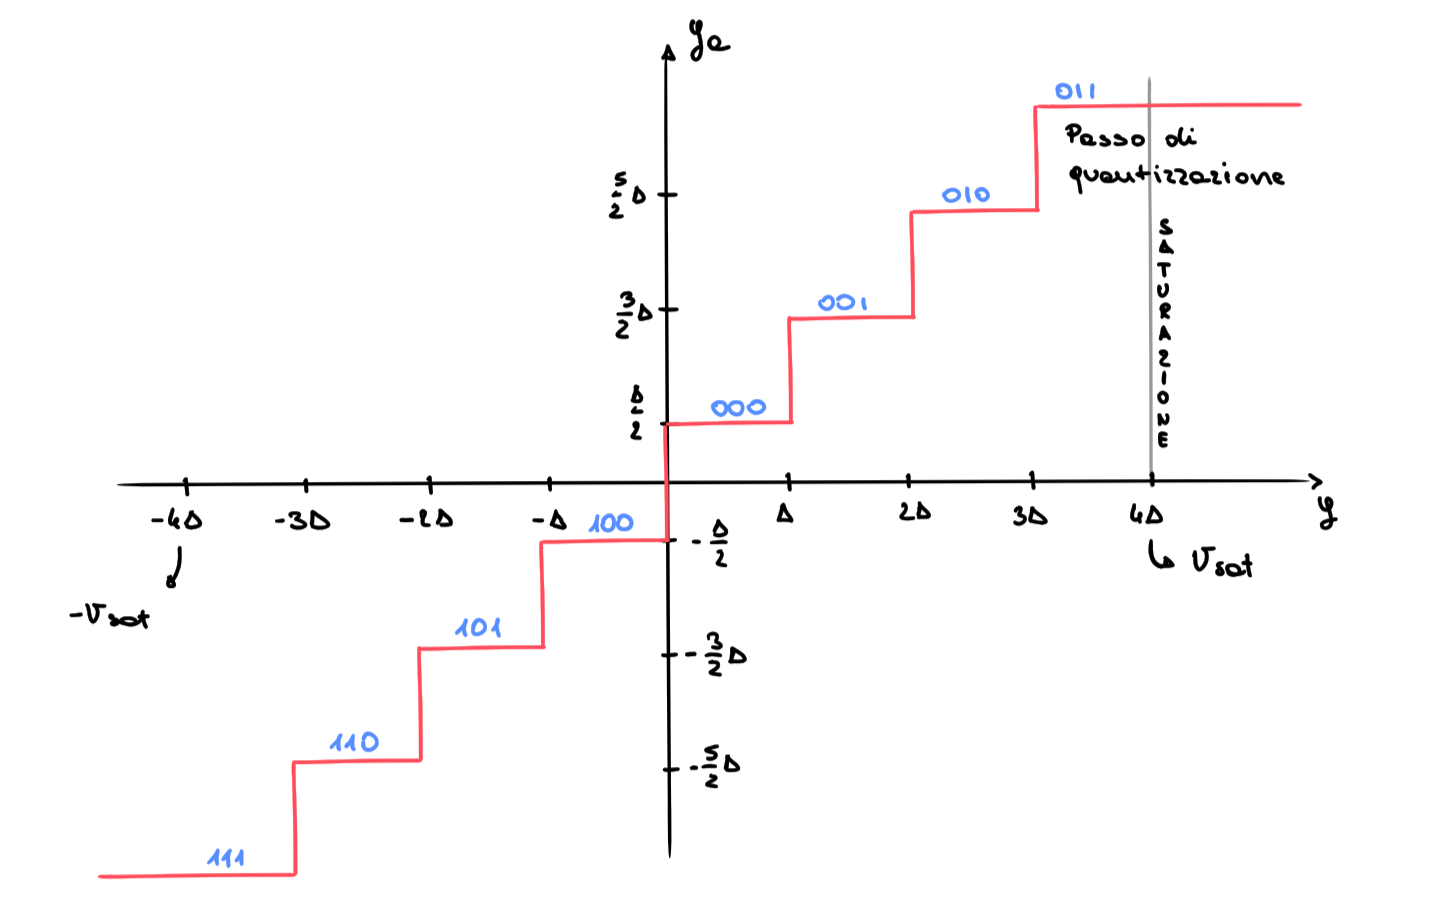 yq
011
Passo di
quantizzazione
5/2 Δ
010
SATURAZIONE
3/2 Δ
001
Δ/2
000
-4Δ -3Δ -2Δ -Δ 100 Δ 2Δ 3Δ 4Δ y
-Δ/2
Vsat
-Vsat
101
-3/2 Δ
110
-5/2 Δ
111